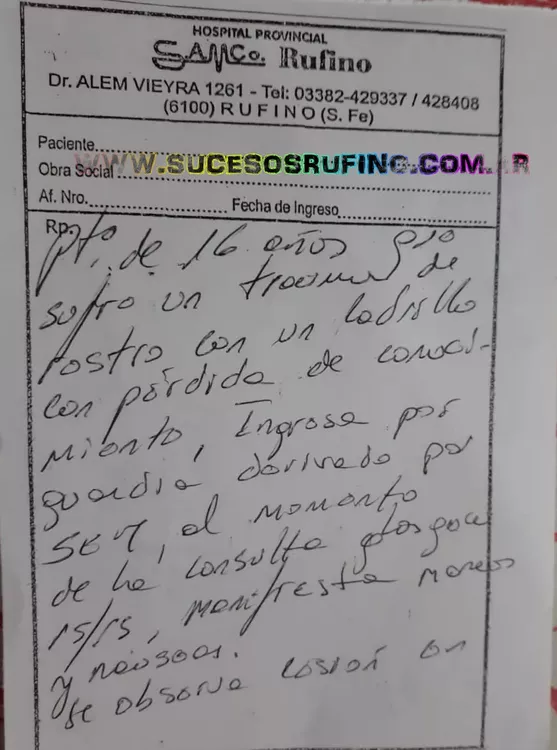 HOSPITAL PROVINCIAL
SAMCo. Rufino
Dr. ALEM VIEYRA 1261 - Tel: 03382-429337 / 428408
(6100) RUFINO (S. Fe)
Paciente
WWW.SUCESOSRUFINO.COM.AR
Obra Social
Af. Nro. Fecha de Ingreso
Rp.
Pte. de 16 años que
sufro un trauma de
rostro con un ladrillo
con pérdida de conoci-
miento, Ingresa por
guardia derivado por
al momento
de la consulta glasgow
15/15, manifiesta mareos
y nauseas.
se observa lesión en